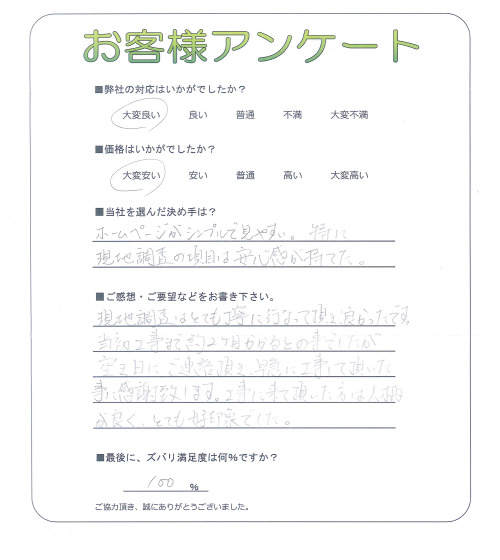 お客様アンケート
■弊社の対応はいかがでしたか？
大変良い 良い 普通 不満 大変不満
■価格はいかがでしたか？
大変安い 安い 普通 高い 大変高い
■当社を選んだ決め手は？
ホームページがシンプルで見やすい。特に
現地調査の項目は安心感が持てた。
■ご感想・ご要望などをお書き下さい。
現地調査はとても丁寧に行なって頂き良かったです。
当初工事まで約2ヶ月かかるとの事でしたが
空き日にご連絡頂き、早急に工事して頂いた
事に感謝致します。工事に来て頂いた方は人柄
が良く、とても好印象でした。
■最後に、ズバリ満足度は何％ですか？
100 ％
ご協力頂き、誠にありがとうございました。